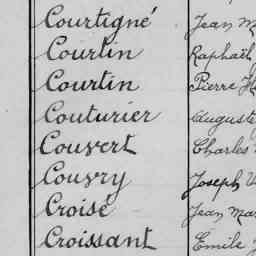 Courtigné Jean M
Courtin Raphaël
Courtin Pierre
Couturier Auguste
Couvert Charles
Couvry Joseph
Croisé Jean Mar
Croissant Emile